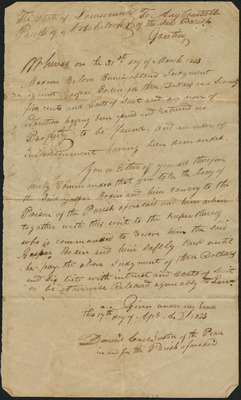 The State of Louisiana To Any Constable
Parish of Natchitoches of the Said Parish
Greeting
Whereas on the 31st day of March 1823
obtained Judgment
against Gasper Bodin for Ten Dollars and Seventy
five cents and Costs of Suit and any
Execution having been issued and returned no
Property to be found, and an order of
imprisonment having been demanded
You or either of you are therefore
hereby Commanded that you take the body of
the Said Gasper Bodin and him convey to the
Prison of the Parish aforesaid and him
together with this writ to the keeper thereof
who is commanded to receive him the said
Gasper Bodin and him Safely keep until
he pays the above Judgment of Ten Dollars
and with interest and costs of Suit
or be otherwise Released agreeably to Law
Given under my hand
this 17th day of Apl. A.D. 1823
David Case Justice of the Peace
in and for the Parish aforesaid